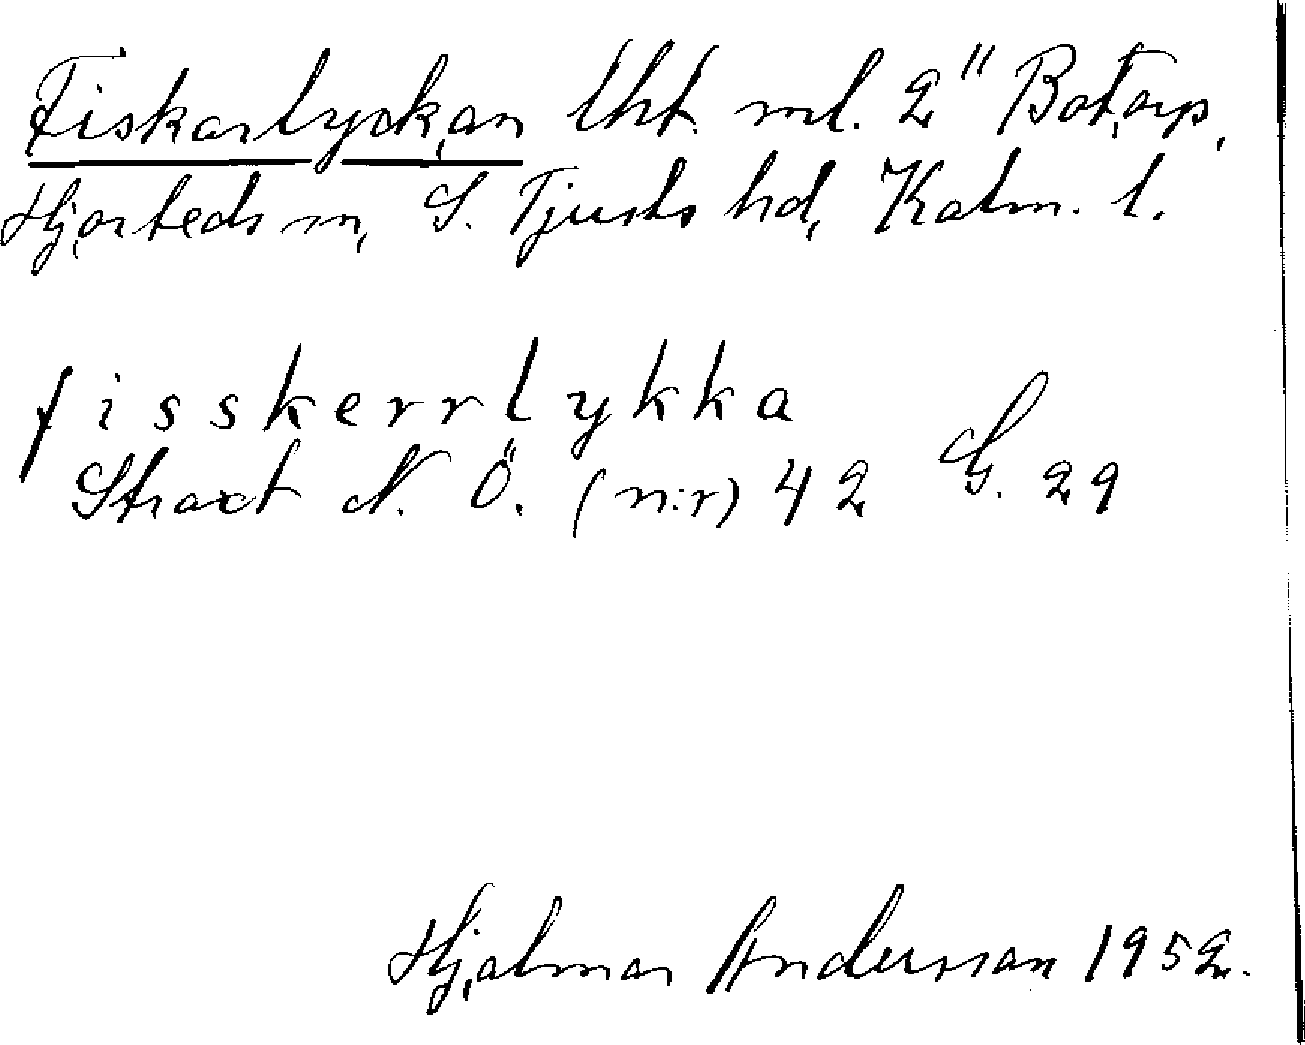 Fiskarlyckan lht. ml. 2" Botorp,
Hjorteds sn, S. Tjusts hd, Kalm. l.
fisskerrlykka
Straxt N. Ö. (n:r) 42 G. 29
Hjalmar Andersson 1952.